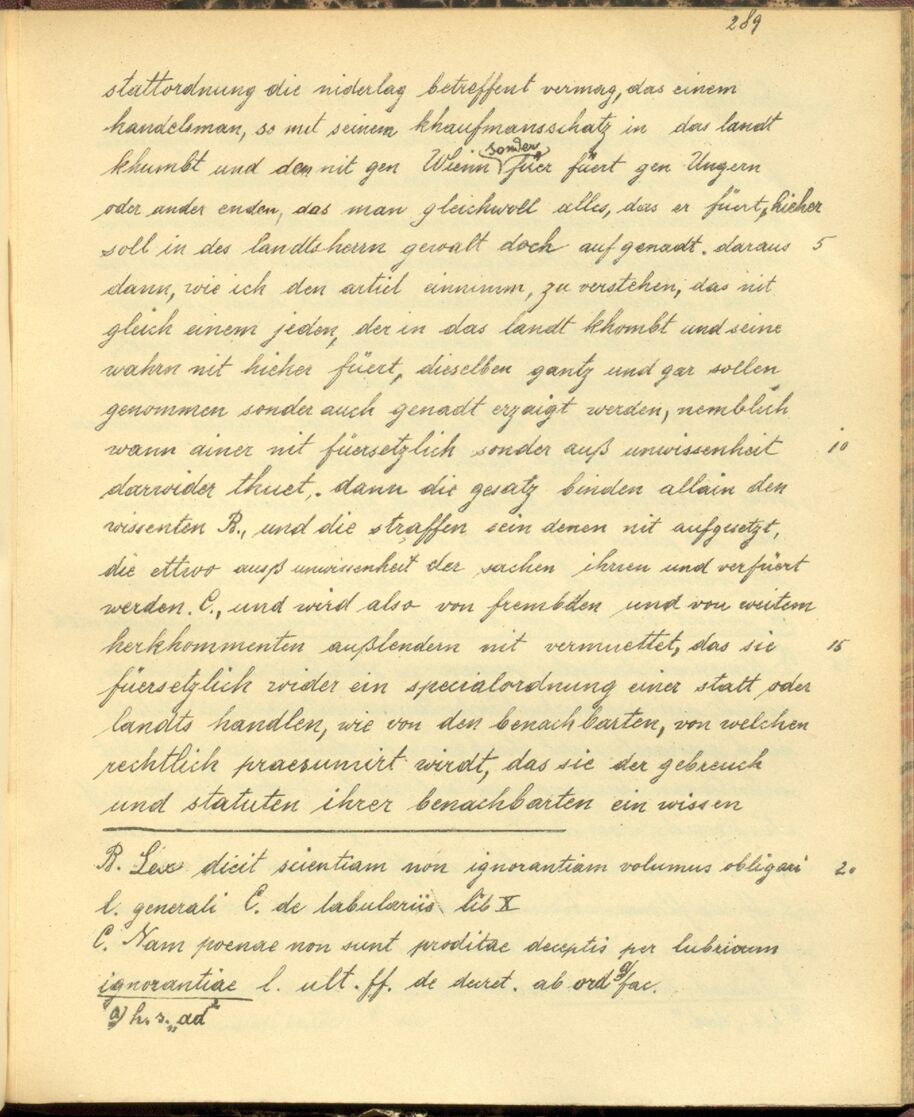 289
stattordnung die niderlag betreffent vermag, das einem
handelsman, so mit seinem khaufmansschatz in das landt
khumbt und den nit gen Wienn sonder füer füert gen Ungern
oder ander enden, das man gleichwoll alles, das er füert, hieher
soll in des landtsherrn gewalt doch auf genadt. daraus 5
dann, wie ich den articl einnimm, zu verstehen, das nit
gleich einem jeden, der in das landt khombt und seine
wahrn nit hieher füert, dieselben gantz und gar sollen
genommen sonder auch genadt erzaigt werden, nemblich
wann ainer nit füersetzlich sonder auß unwissenheit 10
darwider thuet, dann die gesatz binden allain den
wissenten B., und die straffen sein denen nit aufgesetzt,
die ettwo auß unwissenheit der sachen ihrren und verfüert
werden. C., und wird also von frembden und von weitem
herkhommenten außlendern nit vermuettet, das sie 15
füersetzlich wider ein specialordnung einer statt oder
landts handlen, wie von den benachbarten, von welchen
rechtlich praesumirt wirdt, das sie der gebreuch
und statuten ihrer benachbarten ein wissen
B. Lex dicit scientiam non ignorantiam volumus obligari 20
l. generali C. de tabulariis lib X
C. Nam poenae non sunt proditae deceptis per lubricum
ignorantiae l. ult. ff. de decret. ab ord a) fac.
a) h. s. „ad"